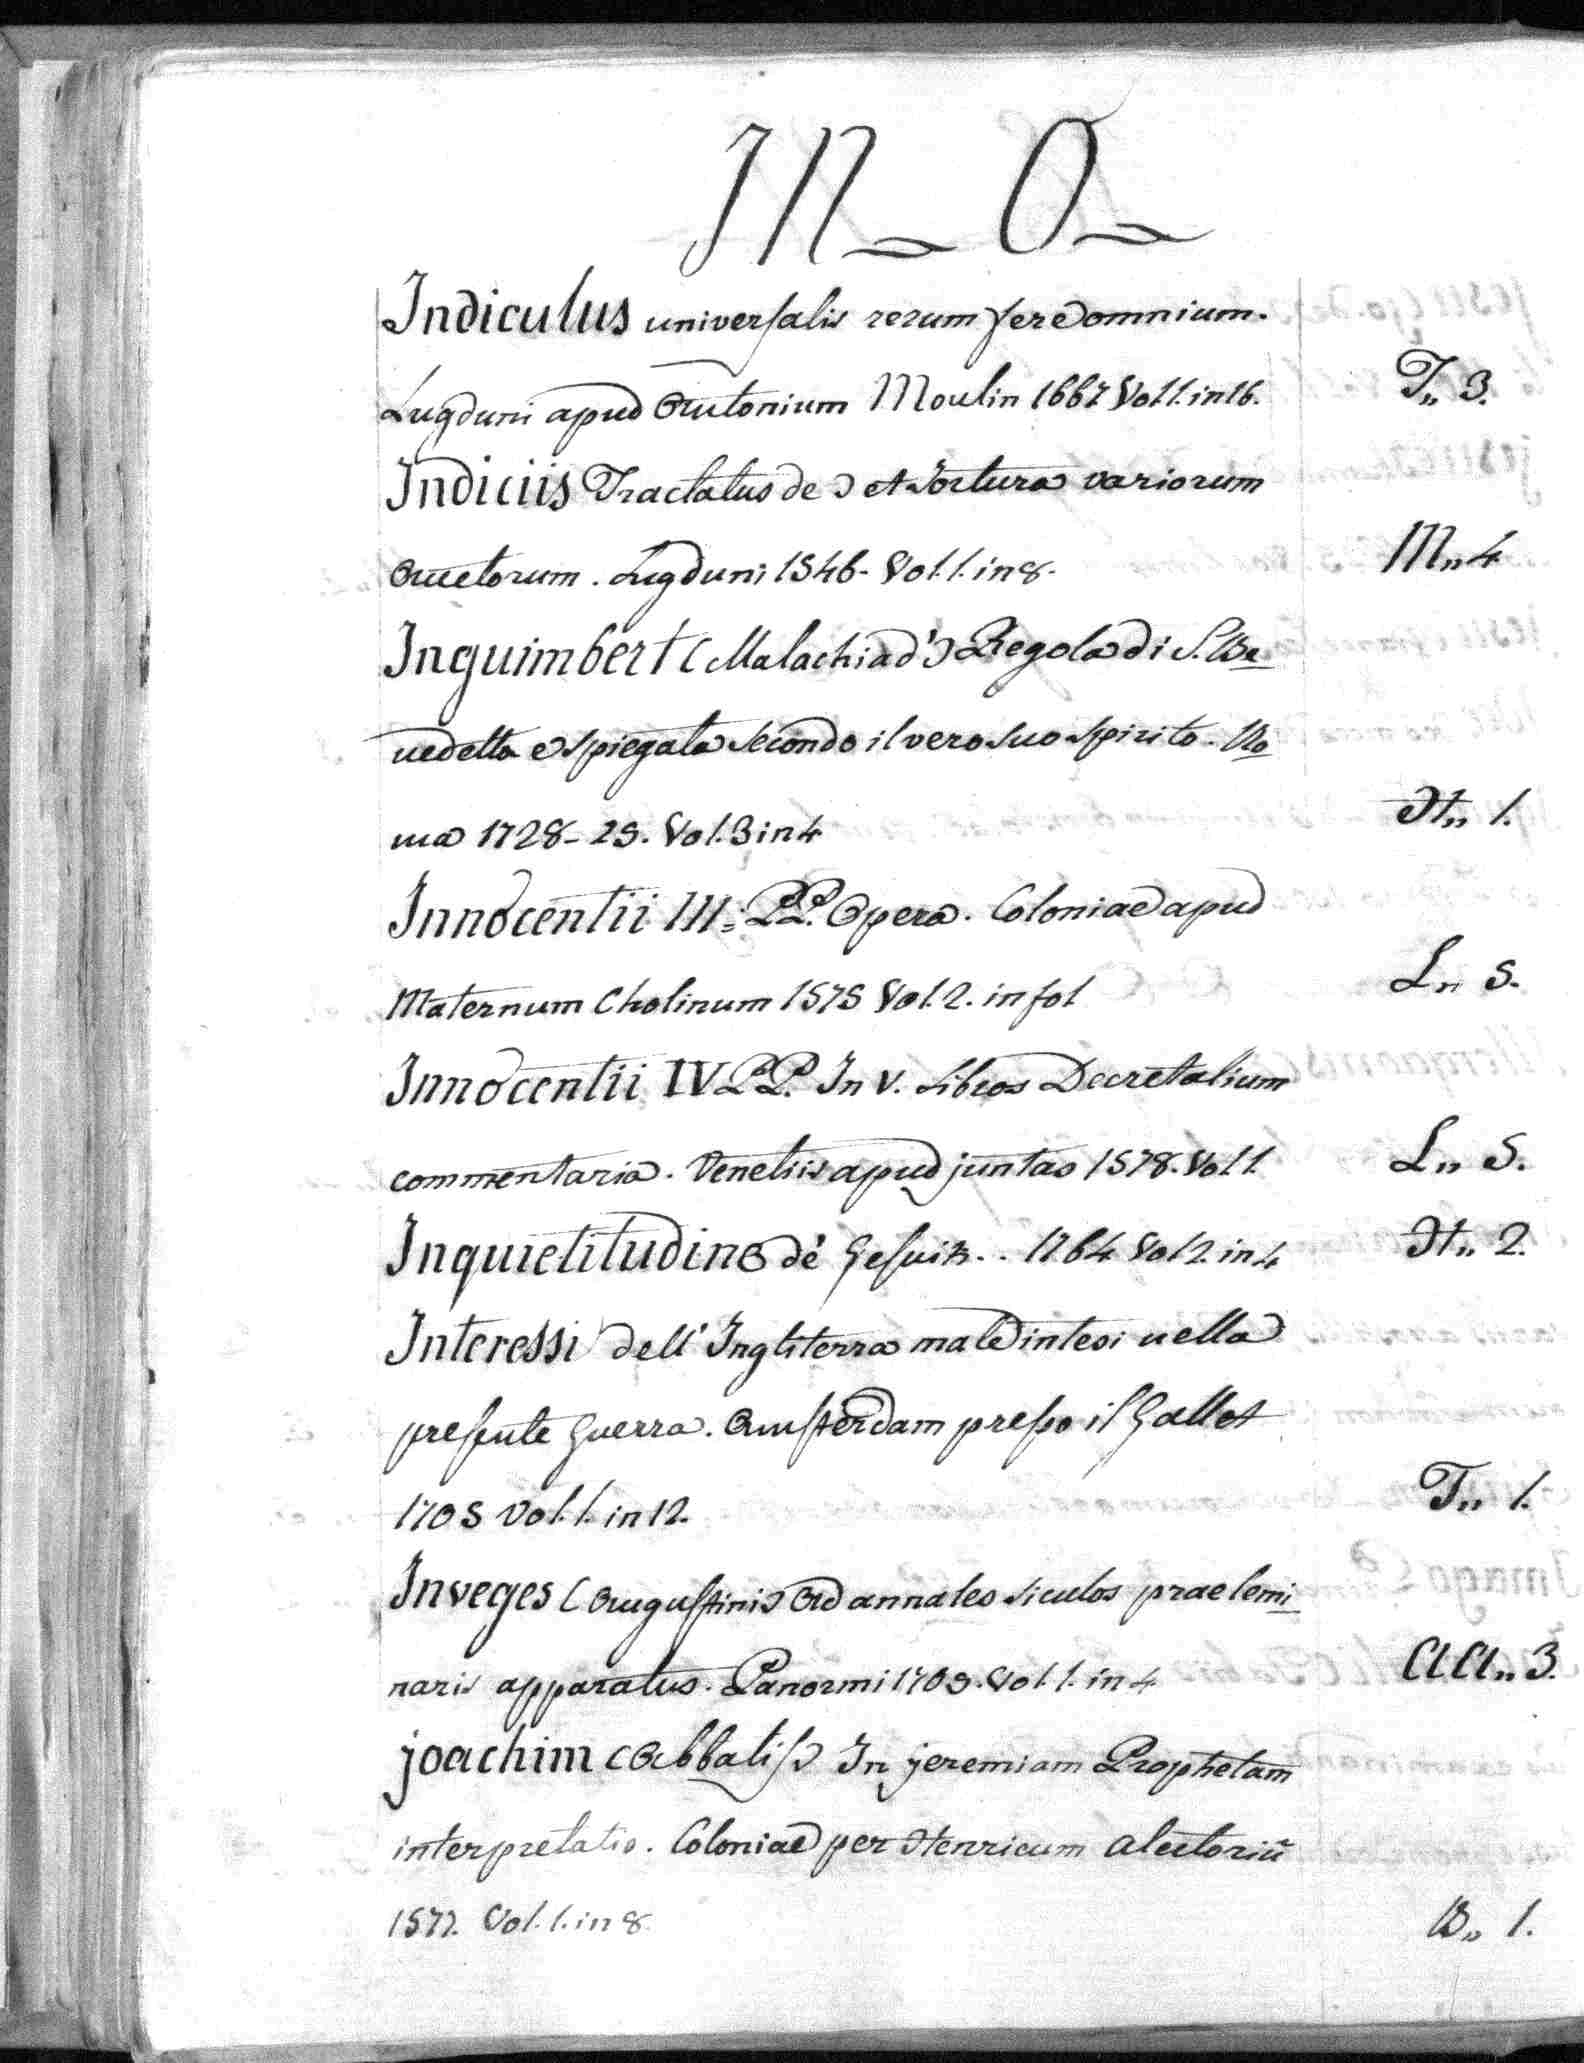 IN_ O_
Indiculus universalis rerum fere omnium.
Lugduni apud Antonium Moulin 1667 Vol 1. in 16. T,, 3.
Indiciis Tractatus de ) et Tortura variorum
Auctorum. Lugduni 1546. Vol. 1. in 8. M,, 4
Inguimbert (Malachia d') Regola di S. Be
nedetto e spiegata secondo il vero suo spirito. Ro
ma 1728-29. Vol. 3 in 4 H,, 1.
Innocentii III. PP. Opera. Coloniae apud
Maternum Cholinum 1575 Vol. 2. in fol L,, 5.
Innocentii IV PP. In V. Libros Decretalium
commentaria. Venetiis apud juntas 1578. Vol 1. L,, 5.
Inquietitudine de' Gesuiti.. 1764 Vol 2. in 4 H,, 2.
Interessi dell' Ingliterra male intesi nella
presente Guerra. Amsterdam presso il Gallet
1705 Vol. 1. in 12. T,, 1.
Inveges (Augustini) Ad annales siculos praelemi
naris apparatus. Panormi 1709. Vol. 1. in 4 AA,, 3.
joachim (Abbatis) In jeremiam Prophetam
interpretatio. Coloniae per Henricum Alectoriũ
1577. Vol. 1. in 8. B,, 1.